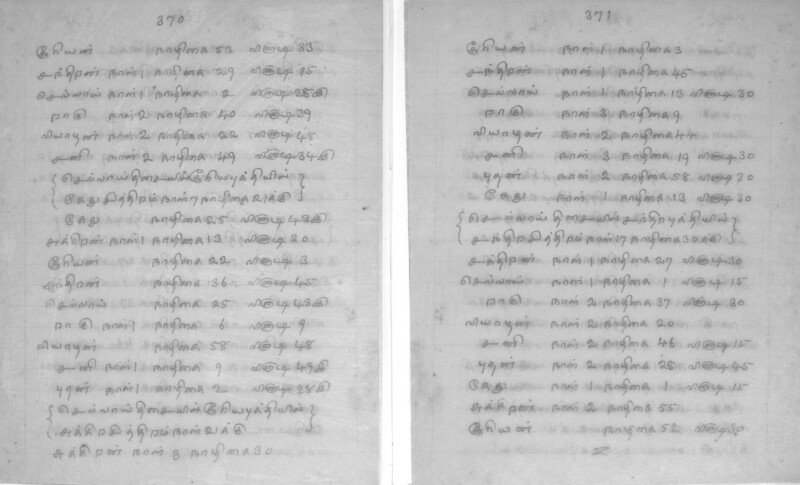 370
சூரியன் நாழிகை 53 விநாடி 33
சந்திரன் நாள் 1 நாழிகை 29 விநாடி 15
செவ்வாய் நாள் 1 நாழிகை 2 விநாடி 28
ராகு நாள் 2 நாழிகை 40 விநாடி 39
வியாழன் நாள் 2 நாழிகை 22 விநாடி 48
சனி நாள் 2 நாழிகை 49 விநாடி 34
கேது நாழிகை 25 விநாடி 43
சுக்கிரன் நாள் 1 நாழிகை 13 விநாடி 20
சூரியன் நாழிகை 22 விநாடி 3
சந்திரன் நாழிகை 36 விநாடி 45
செவ்வாய் நாழிகை 25 விநாடி 43
ராகு நாள் 1 நாழிகை 6 விநாடி 9
வியாழன் நாழிகை 58 விநாடி 48
சனி நாள் 1 நாழிகை 9 விநாடி 49
புதன் நாள் 1 நாழிகை 2 விநாடி 28
சுக்கிரன் நாள் 8 நாழிகை 30
371
சூரியன் நாள் 1 நாழிகை 3
சந்திரன் நாள் 1 நாழிகை 45
செவ்வாய் நாள் 1 நாழிகை 13 விநாடி 30
ராகு நாள் 3 நாழிகை 9
வியாழன் நாள் 2 நாழிகை 44
சனி நாள் 3 நாழிகை 19 விநாடி 30
புதன் நாள் 2 நாழிகை 58 விநாடி 30
கேது நாள் 1 நாழிகை 13 விநாடி 30
சந்திரன் நாள் 1 நாழிகை 27 விநாடி 30
செவ்வாய் நாள் 1 நாழிகை 1 விநாடி 15
ராகு நாள் 2 நாழிகை 37 விநாடி 30
வியாழன் நாள் 2 நாழிகை 20
சனி நாள் 2 நாழிகை 46 விநாடி 15
புதன் நாள் 2 நாழிகை 28 விநாடி 45
கேது நாள் 1 நாழிகை 1 விநாடி 15
சுக்கிரன் நாள் 2 நாழிகை 55
சூரியன் நாழிகை 52 விநாடி 30